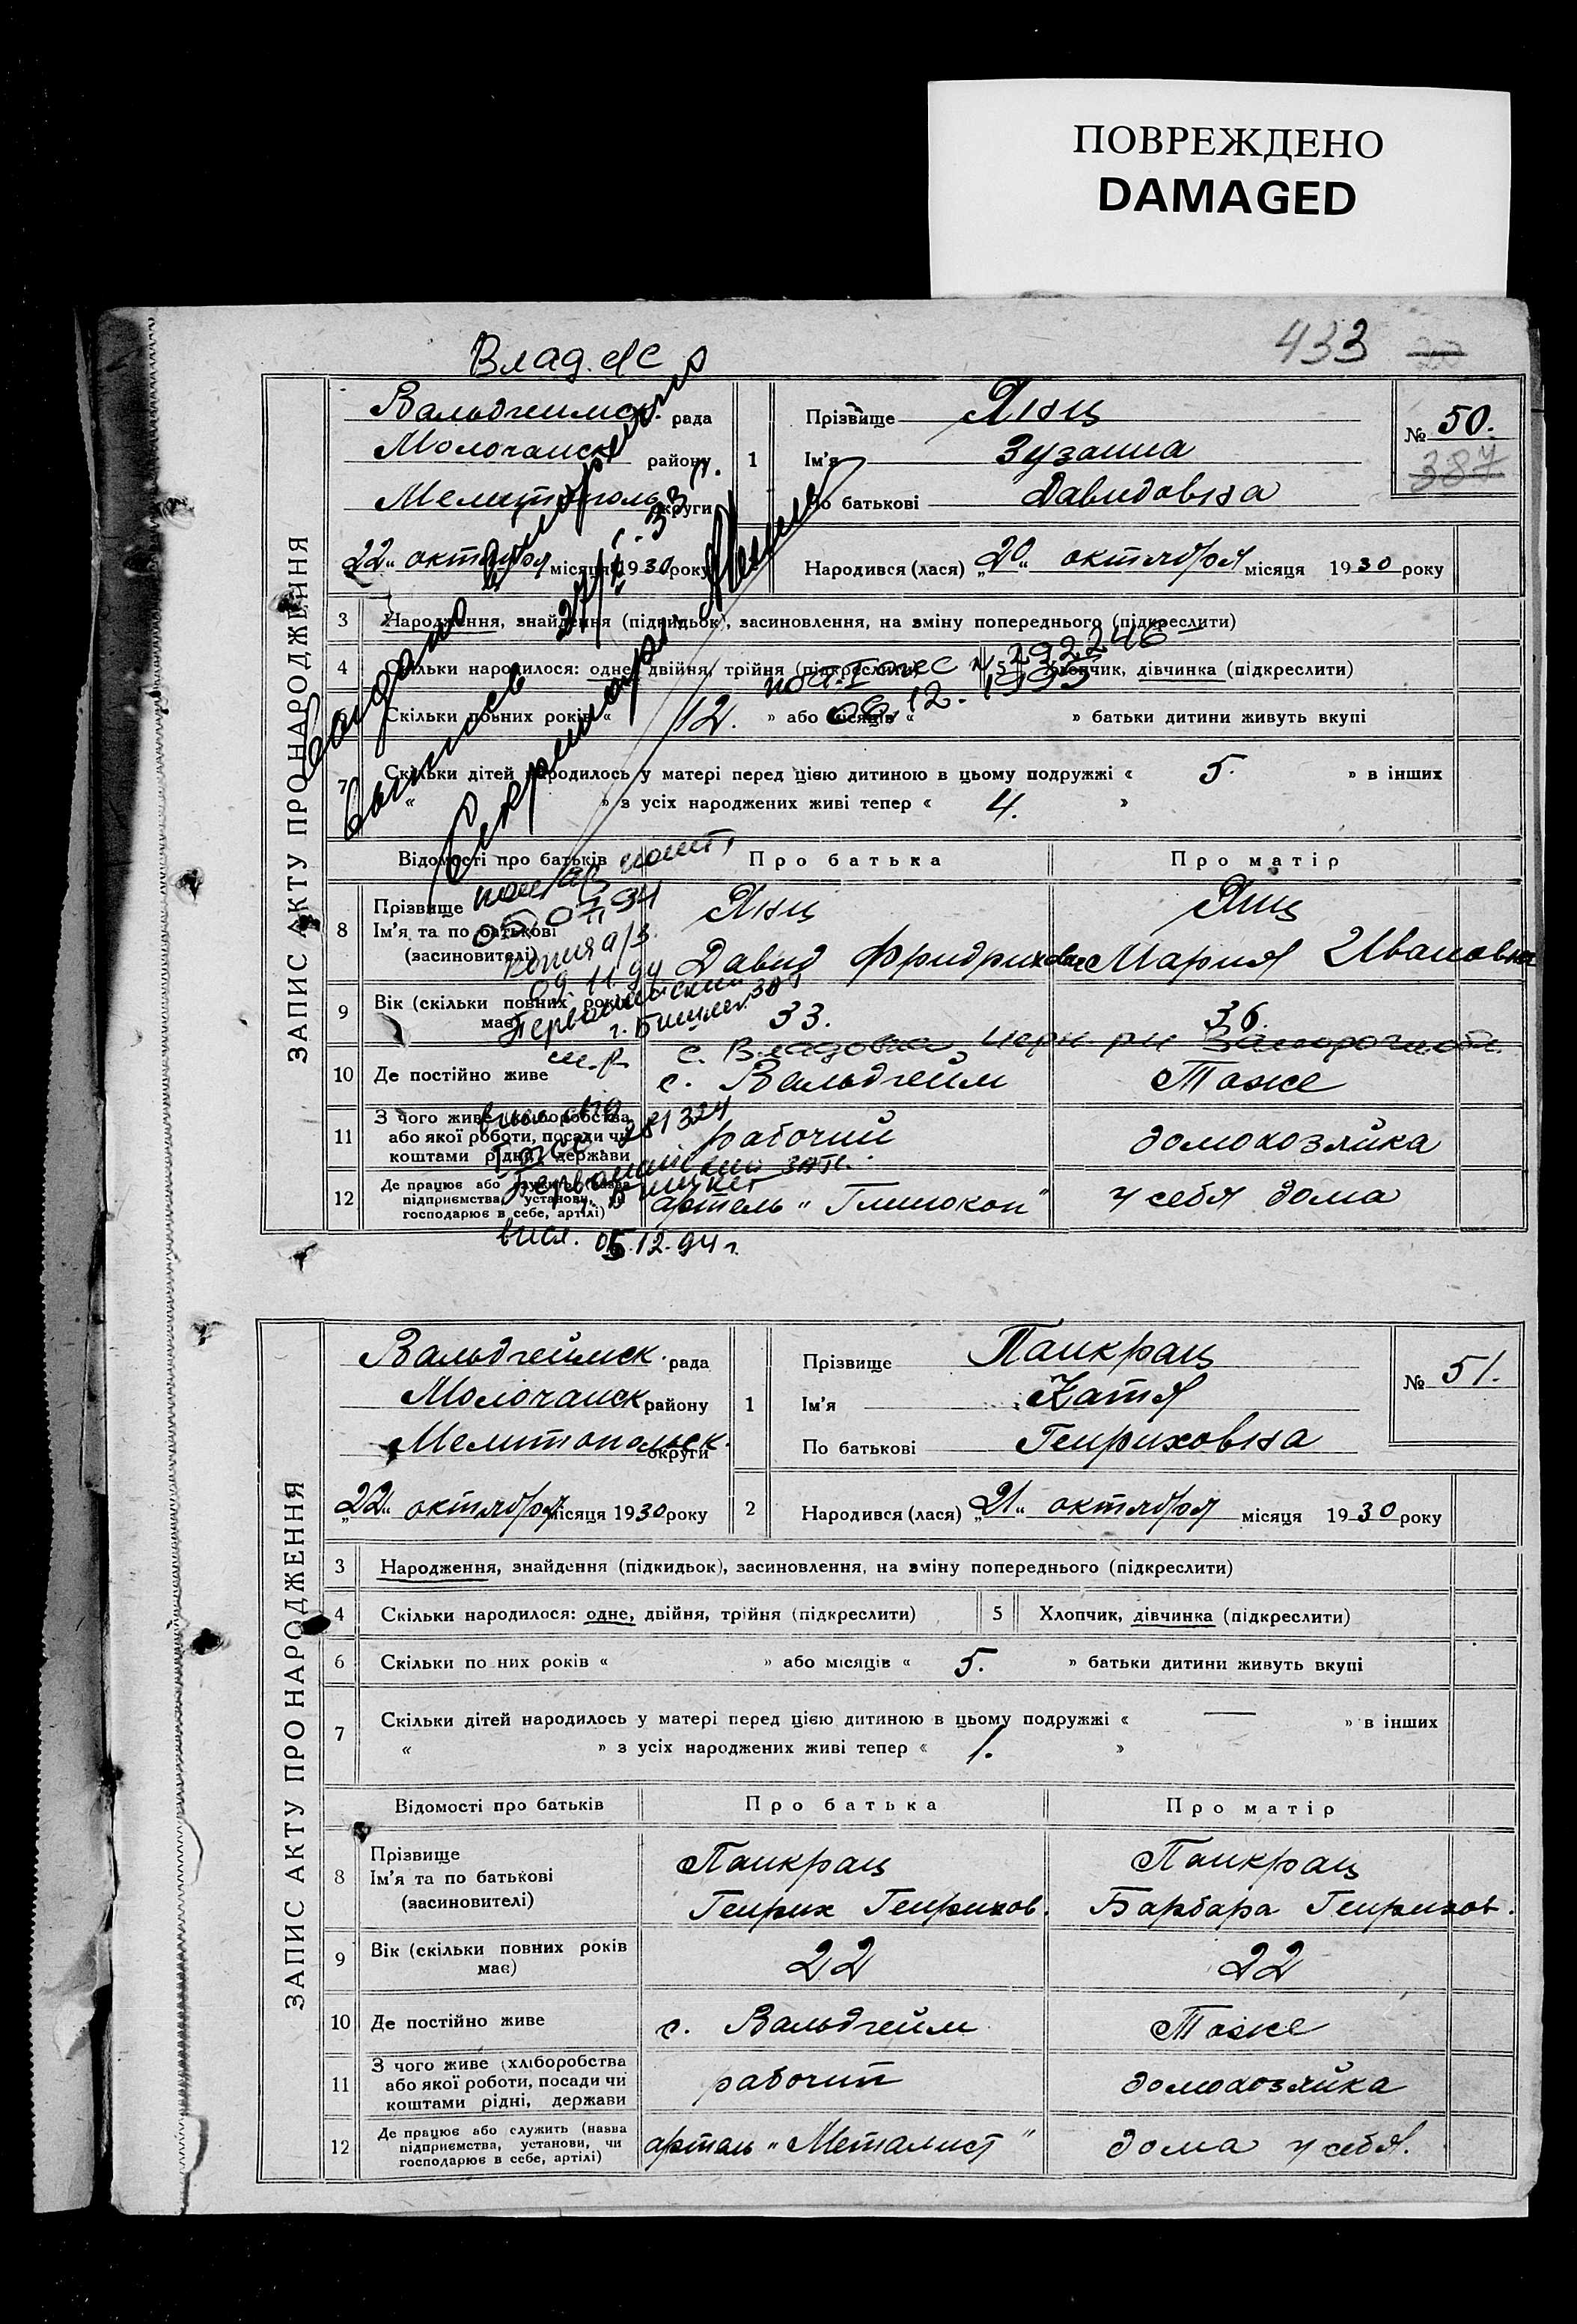 ПОВРЕЖДЕНО
DAMAGED
433
Влад. с/с
ЗАПИС АКТУ ПРО НАРОДЖЕННЯ
Вальдгеимск. рада
Молочанск району
Мелитополь округи
„22“ октября місяця 1930 року
1 Прізвище Янц
Ім'я Зузанна
По батькові Давидовна
№ 50.
387
Народився (лася) „20“ октября місяця 1930 року
3 Народження, знайдення (підкидьок), засиновлення, на зміну попереднього (підкреслити)
4 Скільки народилося: одне, двійня, трійня (підкреслити) 5 Хлопчик, дівчинка (підкреслити)
Скільки повних років « 12. » або місяців « » батьки дитини живуть вкупі
7 Скільки дітей народилось у матері перед цією дитиною в цьому подружжі « 5. » в інших
« » з усіх народжених живі тепер « 4. »
292246
08.12.1995
Відомості про батьків Про батька Про матір
8 Прізвище
Ім'я та по батькові
(засновителі)
Янц
Давид Фридрихович
Янц
Мария Ивановна
9 Вік (скільки повних років
має)
33. 36.
10 Де постійно живе с. Вальдгейм Тоже
11 З чого живе (хліборобства
або якої роботи, посади чи
коштами рідні, держави
рабочий домохозяйка
12 Де працює або служить (назва
підприємства, установи, чи
господарює в себе, артілі)
артель „Глинокоп“ у себя дома
копия а/з
09.11.94
281324
висл. 05.12.94 г.
ЗАПИС АКТУ ПРО НАРОДЖЕННЯ
Вальдгеймск. рада
Молочанск району
Мелитопольск. округи
„22“ октября місяця 1930 року
1 Прізвище Панкрац
Ім'я Катя
По батькові Генриховна
№ 51.
2 Народився (лася) „21“ октября місяця 1930 року
3 Народження, знайдення (підкидьок), засиновлення, на зміну попереднього (підкреслити)
4 Скільки народилося: одне, двійня, трійня (підкреслити) 5 Хлопчик, дівчинка (підкреслити)
6 Скільки по них років « » або місяців « 5. » батьки дитини живуть вкупі
7 Скільки дітей народилось у матері перед цією дитиною в цьому подружжі « — » в інших
« » з усіх народжених живі тепер « 1. »
Відомості про батьків Про батька Про матір
8 Прізвище
Ім'я та по батькові
(засиновителі)
Панкрац
Генрих Генрихов.
Панкрац
Барбара Генрихов.
9 Вік (скільки повних років
має)
22 22
10 Де постійно живе с. Вальдгейм Тоже
11 З чого живе (хліборобства
або якої роботи, посади чи
коштами рідні, держави
рабочий домохозяйка
12 Де працює або служить (назва
підприємства, установи, чи
господарює в себе, артілі)
артель „Металист“ дома у себя.